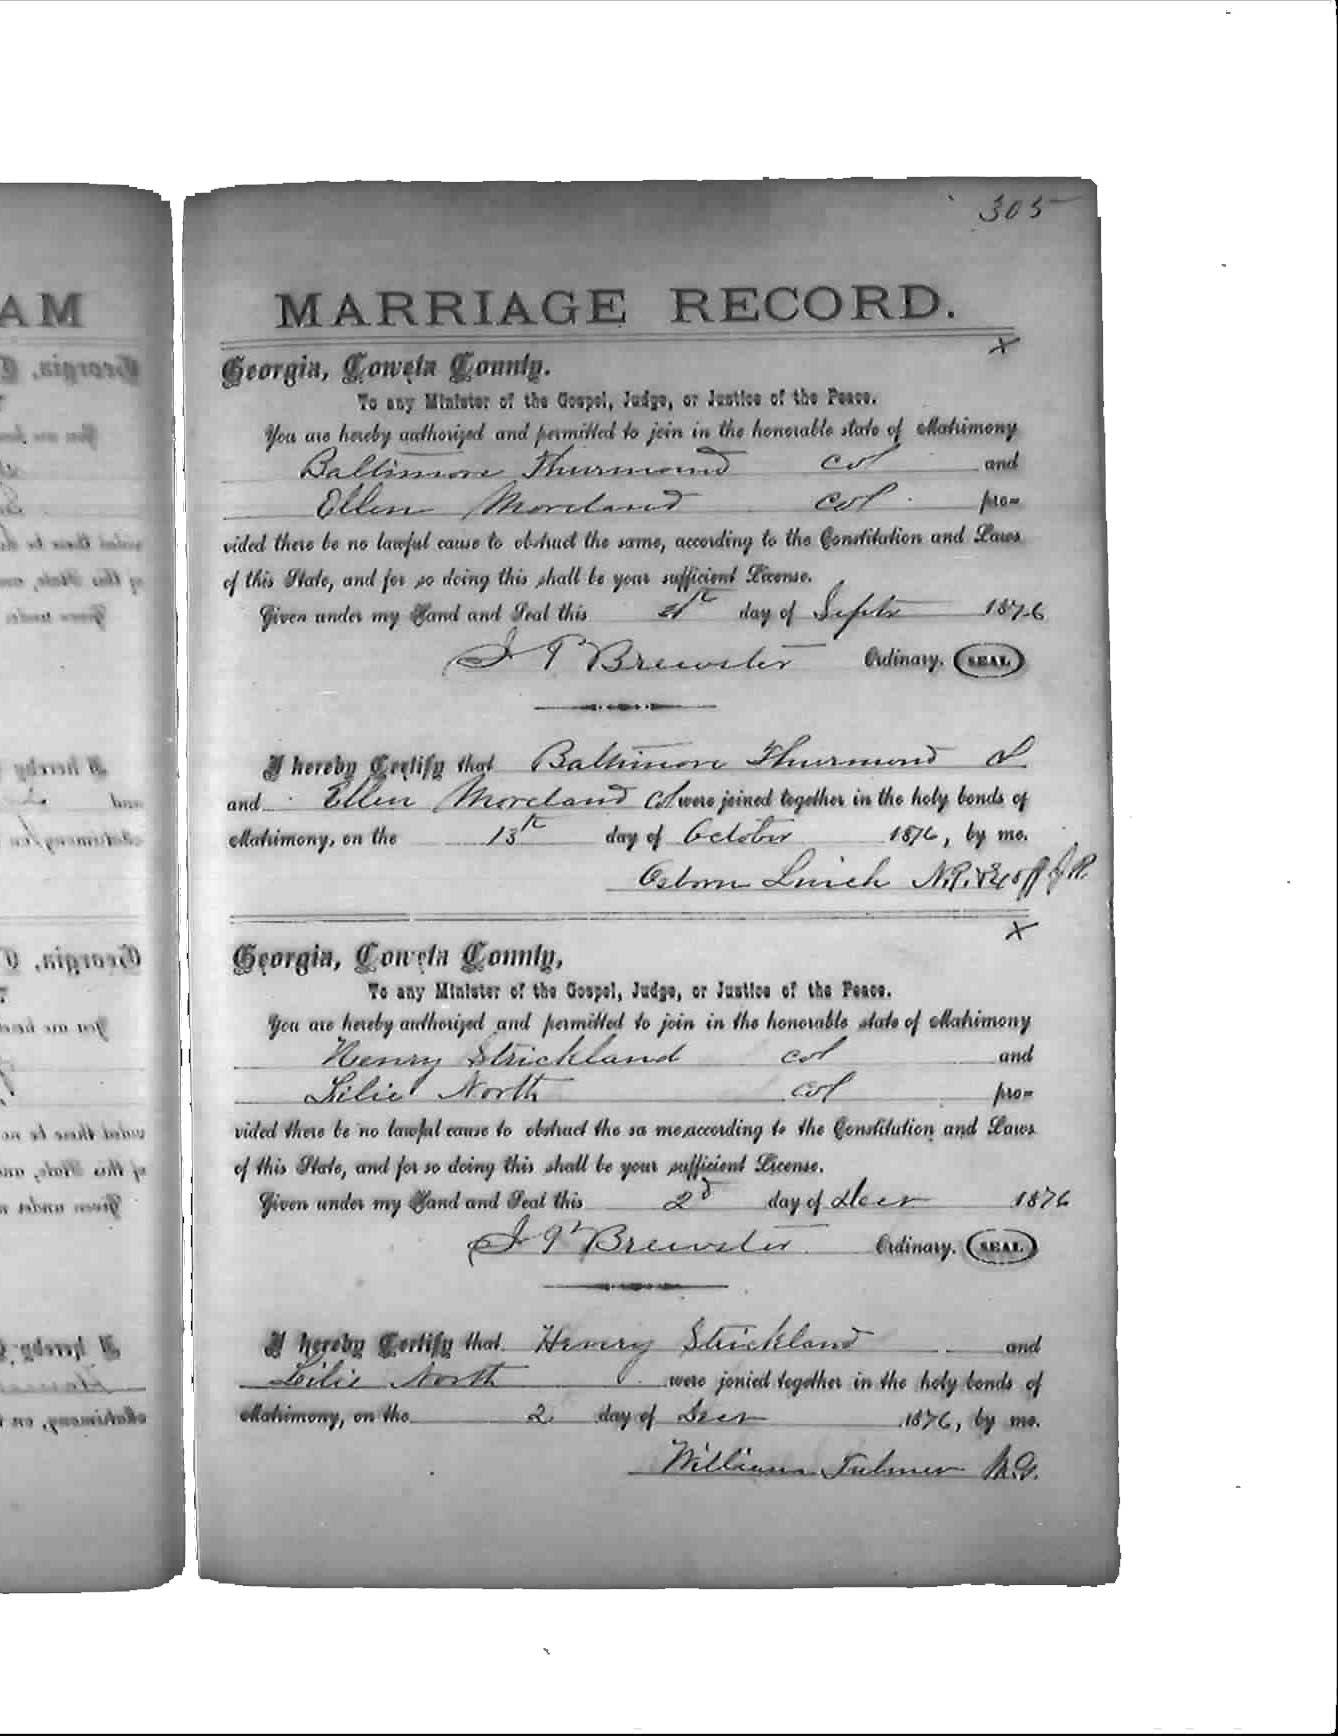 305
MARRIAGE RECORD.
Georgia, Coweta County.
To any Minister of the Gospel, Judge, or Justice of the Peace.
You are hereby authorized and permitted to join in the honorable state of Matrimony
Baltimore Thurmond col and
Ellen Moreland col pro=
vided there be no lawful cause to obstruct the same, according to the Constitution and Laws
of this State, and for so doing this shall be your sufficient License.
Given under my Hand and Seal this day of Septr 1876
J P Brewster Ordinary. SEAL
I hereby Certify that Baltimore Thurmond
and Ellen Moreland col were joined together in the holy bonds of
Matrimony, on the 13th day of October 1876, by me.
Osborn Linch N.P. & Ex off J.P.
Georgia, Coweta County,
To any Minister of the Gospel, Judge, or Justice of the Peace.
You are hereby authorized and permitted to join in the honorable state of Matrimony
Henry Strickland col and
Lilie North col pro=
vided there be no lawful cause to obstruct the sa me, according to the Constitution and Laws
of this State, and for so doing this shall be your sufficient License.
Given under my Hand and Seal this 2d day of Decr 1876
J P Brewster Ordinary. SEAL
I hereby Certify that Henry Strickland and
Lilie North were jonied together in the holy bonds of
Matrimony, on the 2 day of Decr 1876, by me.
William M.G.